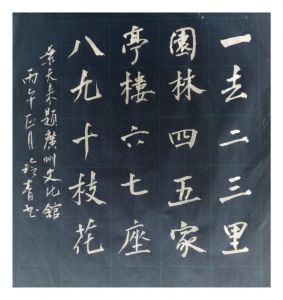 一去二三里
園林四五家
亭樓六七座
八九十枝花
葉天來題廣州文化館
丙午正月
青书